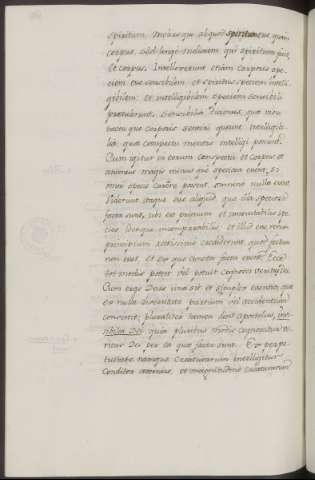 spiritum, Melius que aliquid spiritu quam
corpus, sed longe meliorem qui spiritum fecit
et corpus. Intellexerunt etiam corporis spe
ciem esse sensibilem, et spiritus speciem intelli
gibilem; et intelligibilem speciem sensibili
prætulerunt. Sensibilia dicimus, quæ visu
tactu que corporis sentiri queunt, Intelligibi
lia quæ conspectu mentis intelligi possunt.
Cum igitur in eorum conspectu et corpus et
animus magis minus que speciosa essent, si
omni specie carere possent, omnino nulla essent,
viderunt itaque esse aliquid, quo illa speciosa
facta sunt, ubi est prima et incommutabilis spe
cies ideoque incomparabilis, et illud esse rerum
principium rectissime crediderunt, quod factum
non esset, et ex quo cuncta facta essent. Ecce
tot modis potuit vel potuit cognosci veritas Dei.
Cum ergo Deus una sit et simplex essentia, quæ
ex nulla diversitate partium vel accidentium
consistit; pluraliter tamen dicit apostolus, invi
sibilia Dei, quia pluribus modis cognoscitur ve
ritas Dei per ea quæ facta sunt. Ex perpe
tuitate namque creaturarum intelligitur
Conditor æternus, ex magnitudine creaturarum